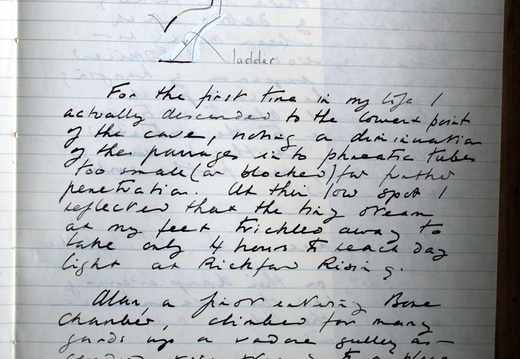 ladder
For the first time in my life I
actually descended to the lowest point
of the cave, noting a diminuation
of the passages in to phreatic tubes
too small (or blocked) for further
penetration. At this low spot I
reflected that the tiny stream
at my feet trickled away to
take only 4 hours to reach day
light at Rickford Rising.
Alan, a prior entering Bone
Chamber, climbed for many
yards up a vadose gulley as-